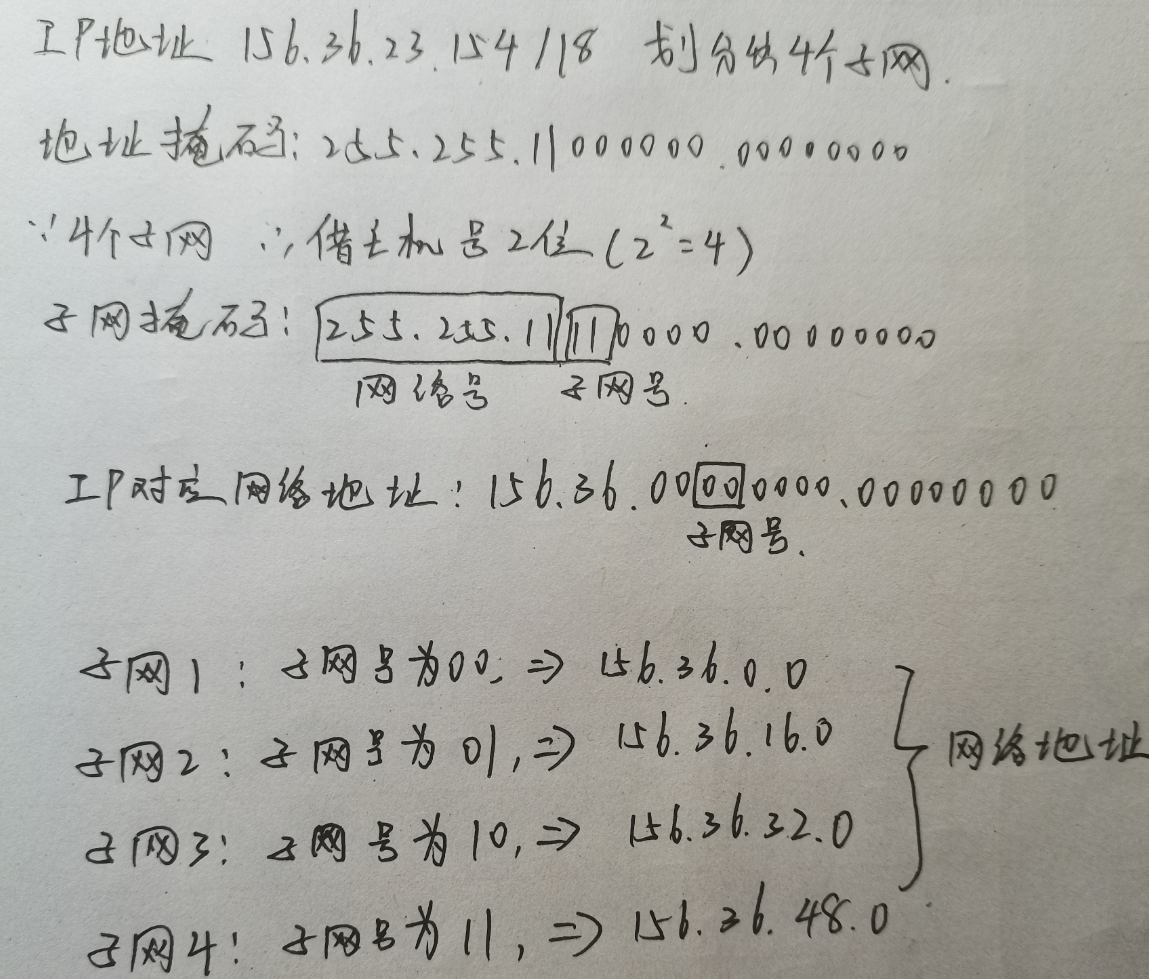 IP地址 156.36.23.154/18 划分为4个子网.
地址掩码: 255.255.11000000.00000000
∵4个子网 ∴借主机号2位(2²=4)
子网掩码: 255.255.11110000.00000000
网络号 子网号.
IP对应网络地址: 156.36.00000000.00000000
子网号.
子网1: 子网号为00, ⇒ 156.36.0.0
子网2: 子网号为01, ⇒ 156.36.16.0
网络地址
子网3: 子网号为10, ⇒ 156.36.32.0
子网4: 子网号为11, ⇒ 156.36.48.0